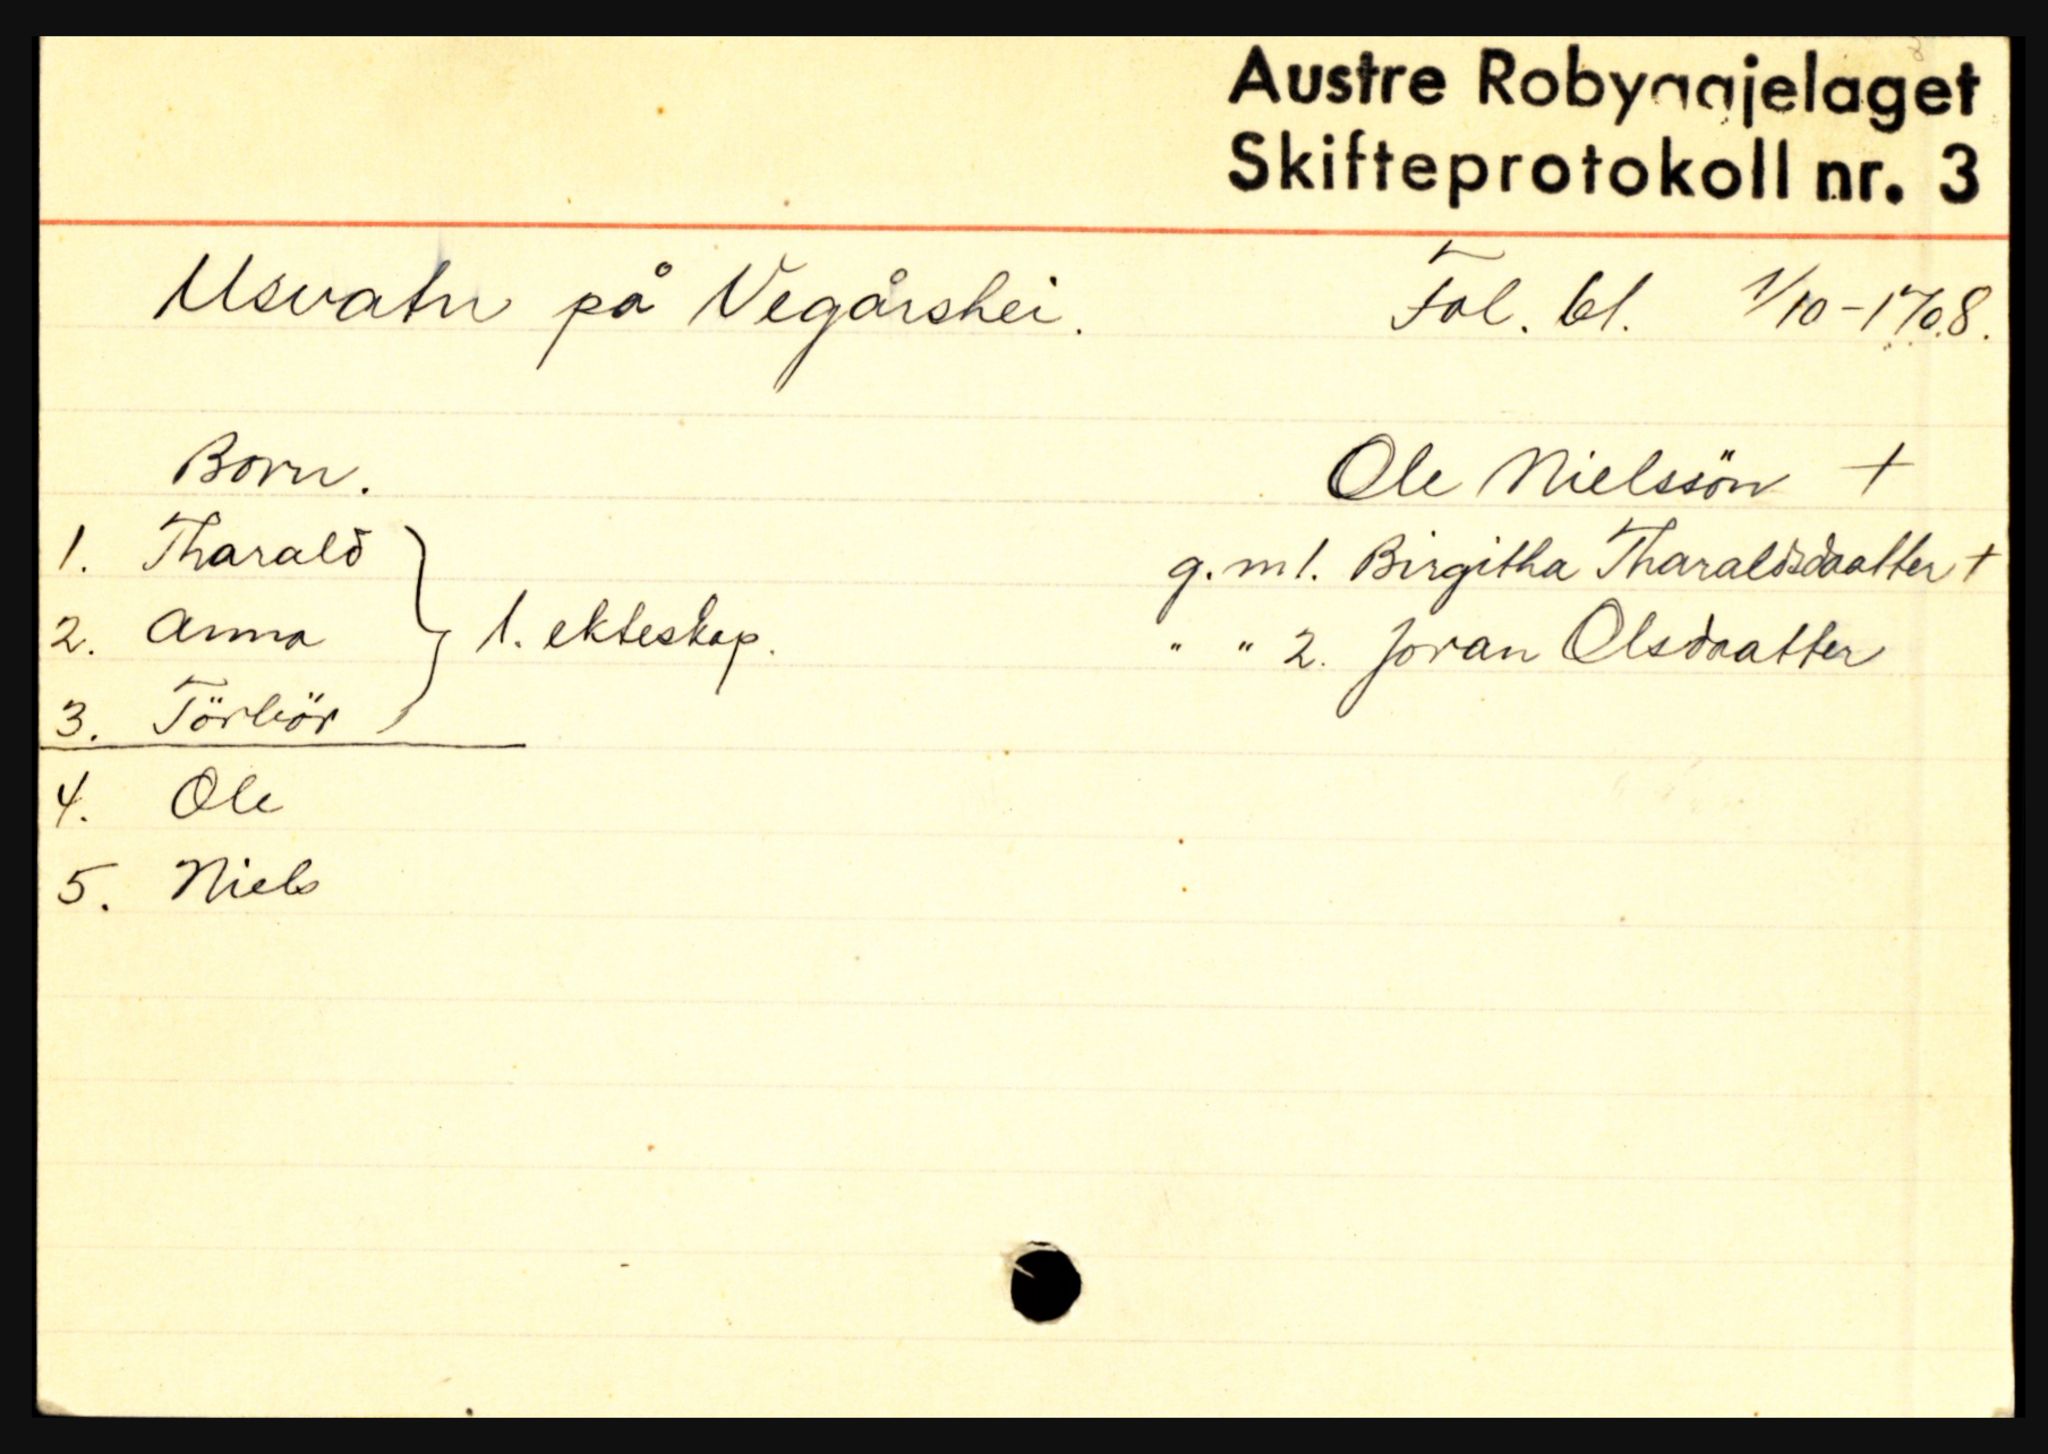 Austre Robyggjelaget
Skifteprotokoll nr. 3
Usvatn på Vegårshei. Fol. 61. 1/10-1708.
Born. Ole Nielssön +
1. Tharald g. m 1. Birgitha Tharaldsdaatter +
2. Anna 1. ekteskap. " " 2. Joran Olsdaatter
3. Törbör
4. Ole
5. Niels